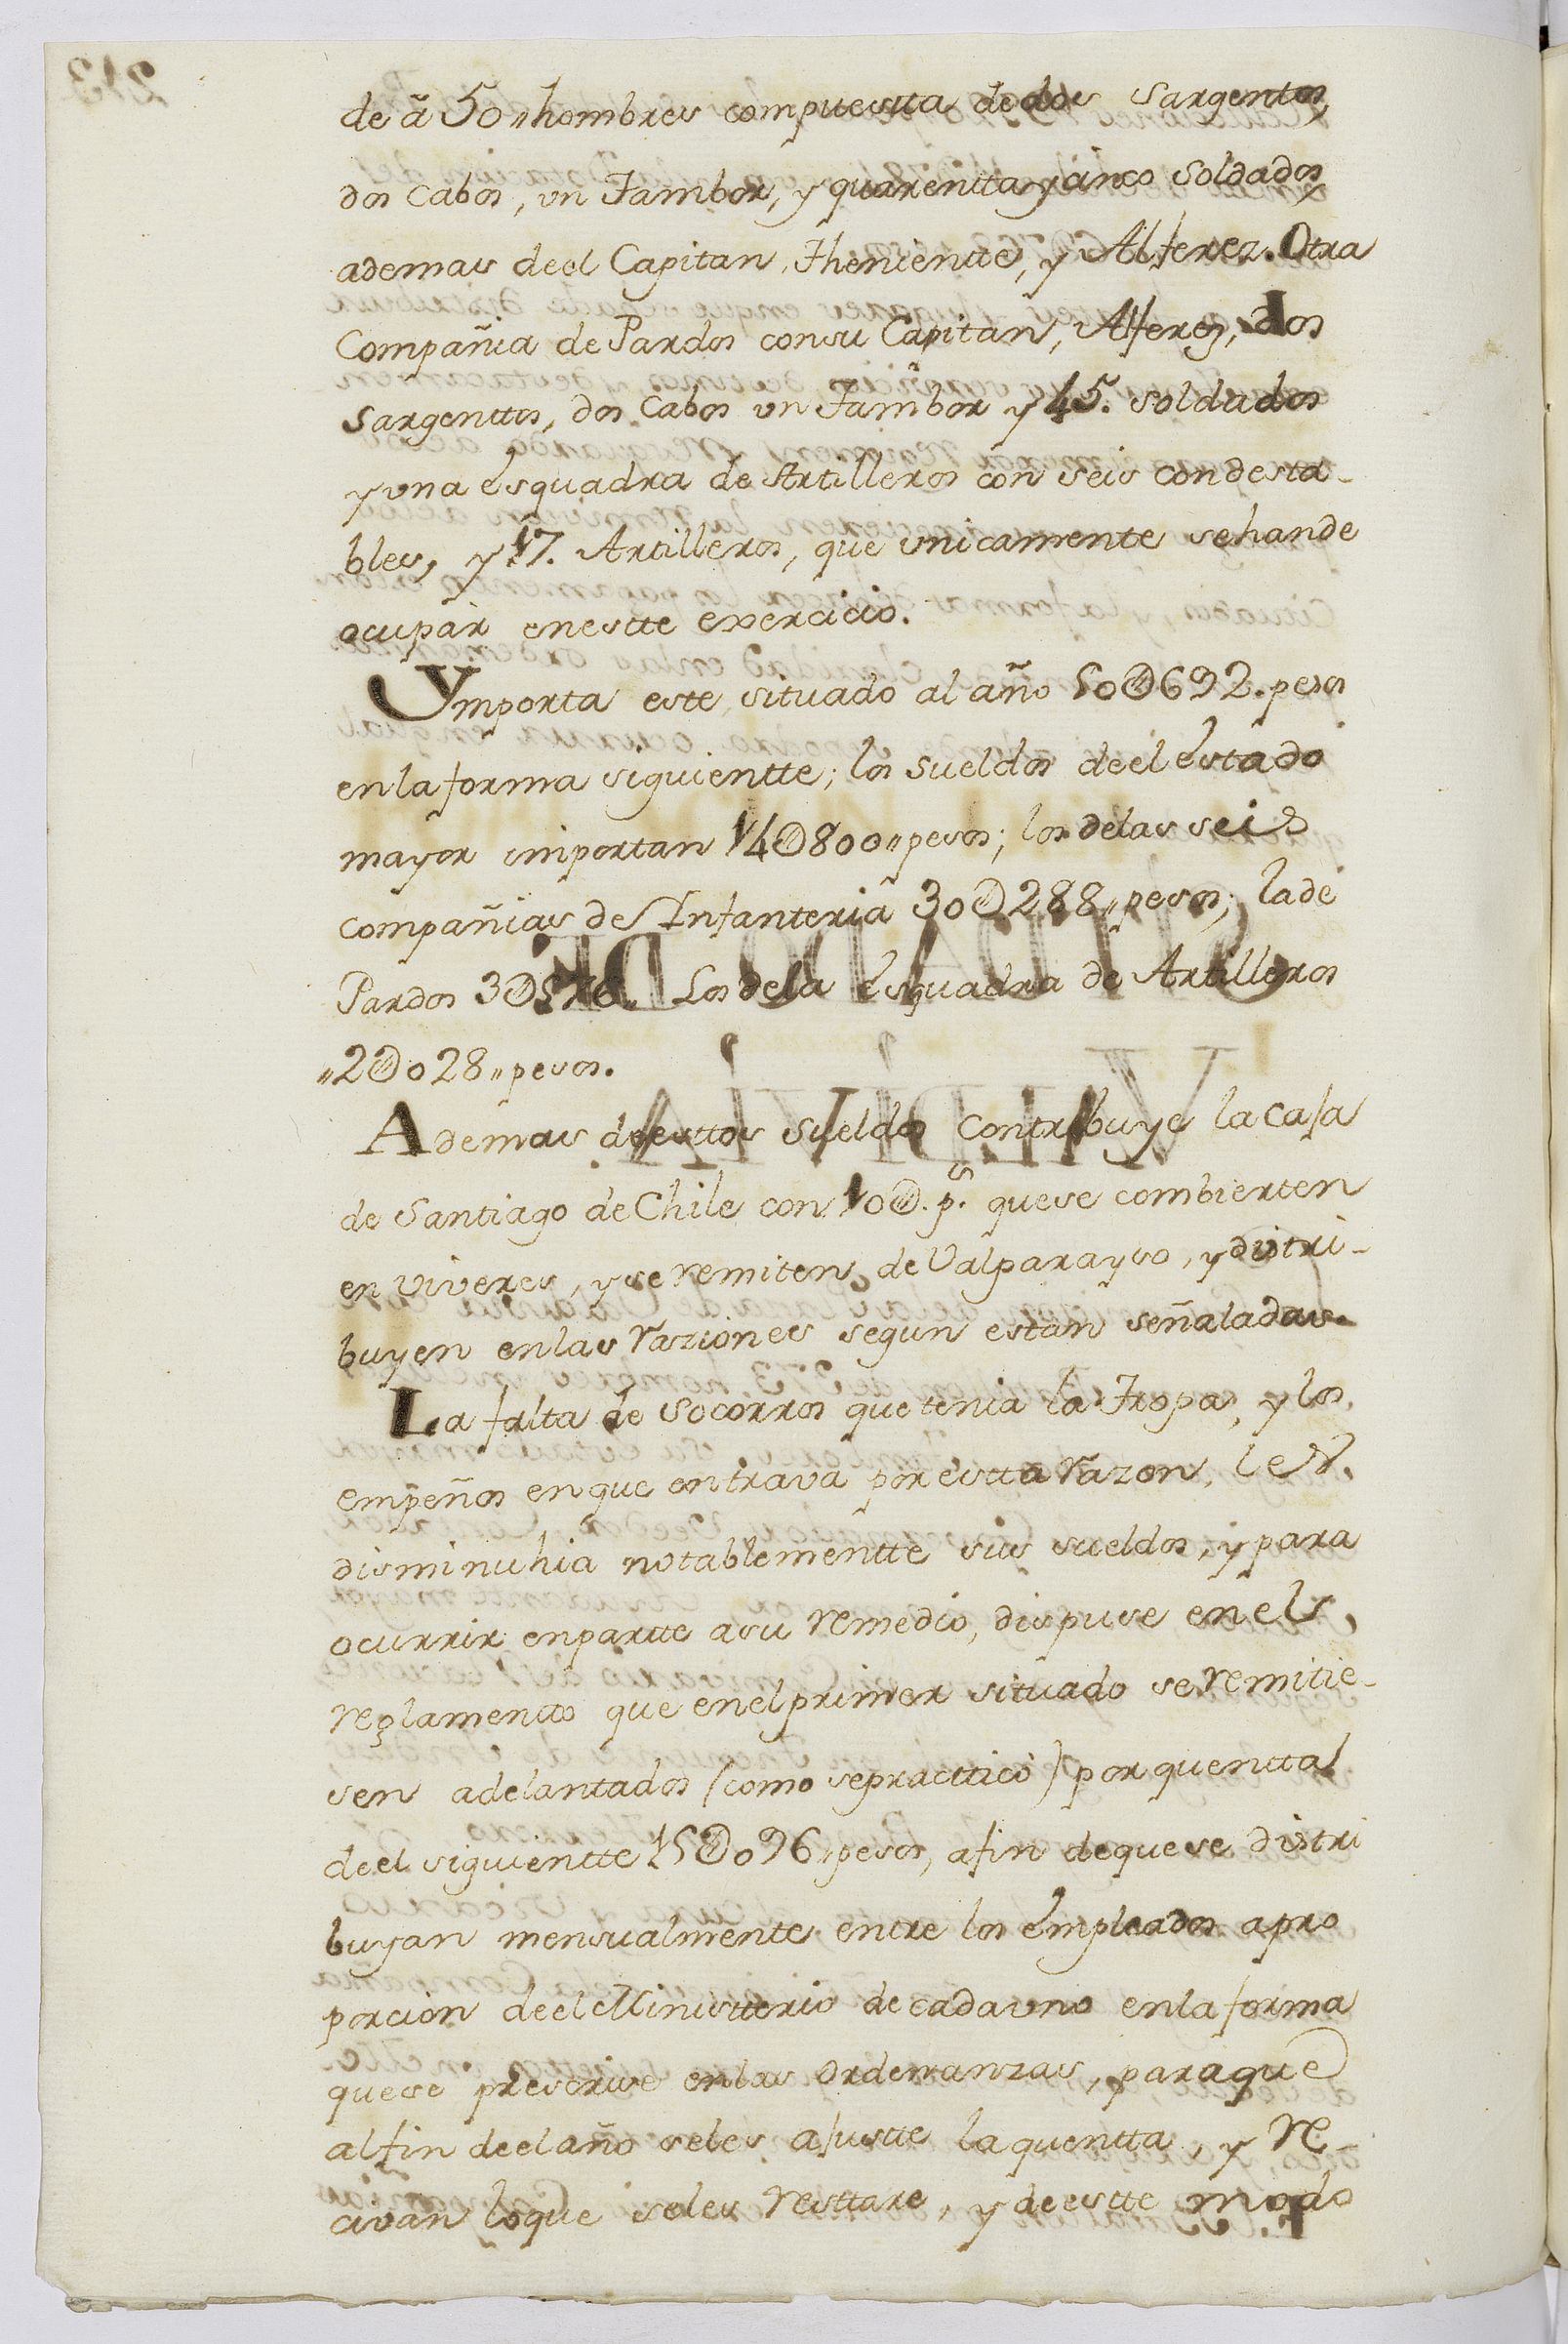 de â 50„ hombres compuestta de dos Sargentos,
dos Cabos, un Tambor, y quarentta y cinco Soldados,
ademas de el Capitan, Thenientte, y Alferez. Otra
Compañia de Pardos con su Capitan, Alferez, dos
Sargenttos, dos Cabos un Tambor y 45. soldados
y una esquadra de Artilleros con seis condesta-
bles, y 17. Artilleros, que unicamente se han de
ocupar en estte exercicio.
Ymporta este situado al año 50@692. pesos
en la forma siguientte; los sueldos de el estado
mayor importan 14@800„ pesos; los de las seis
compañias de Infanteria 30@288„ pesos; la de
Pardos 3@576„ Los de la esquadra de Artilleros
„2@028„ pesos.
Ademas de esttos Sueldos Contribuye la Casa
de Santiago de Chile con 10@. p.s que se combierten
en viveres, y se remiten de Valparayso, y distri-
buyen en las raziones segun estan señaladas.
La falta de socorros que tenia la Tropa, y los
empeños en que entrava por estta razon, les
disminuhia notablementte sus sueldos, y para
ocurrir en partte a su remedio, dispuse en el
reglamentto que en el primer situado se remitie-
sen adelantados (como se practticò) por quentta
de el siguientte 15@096„ pesos, a fin de que se distri
buyan mensualmente entre los empleados a pro
porcion de el Ministterio de cada uno en la forma
que se prescrive en las ordenanzas, para que
al fin de el año se les ajustte la quentta, y re-
civan lo que se les resttare, y de estte modo